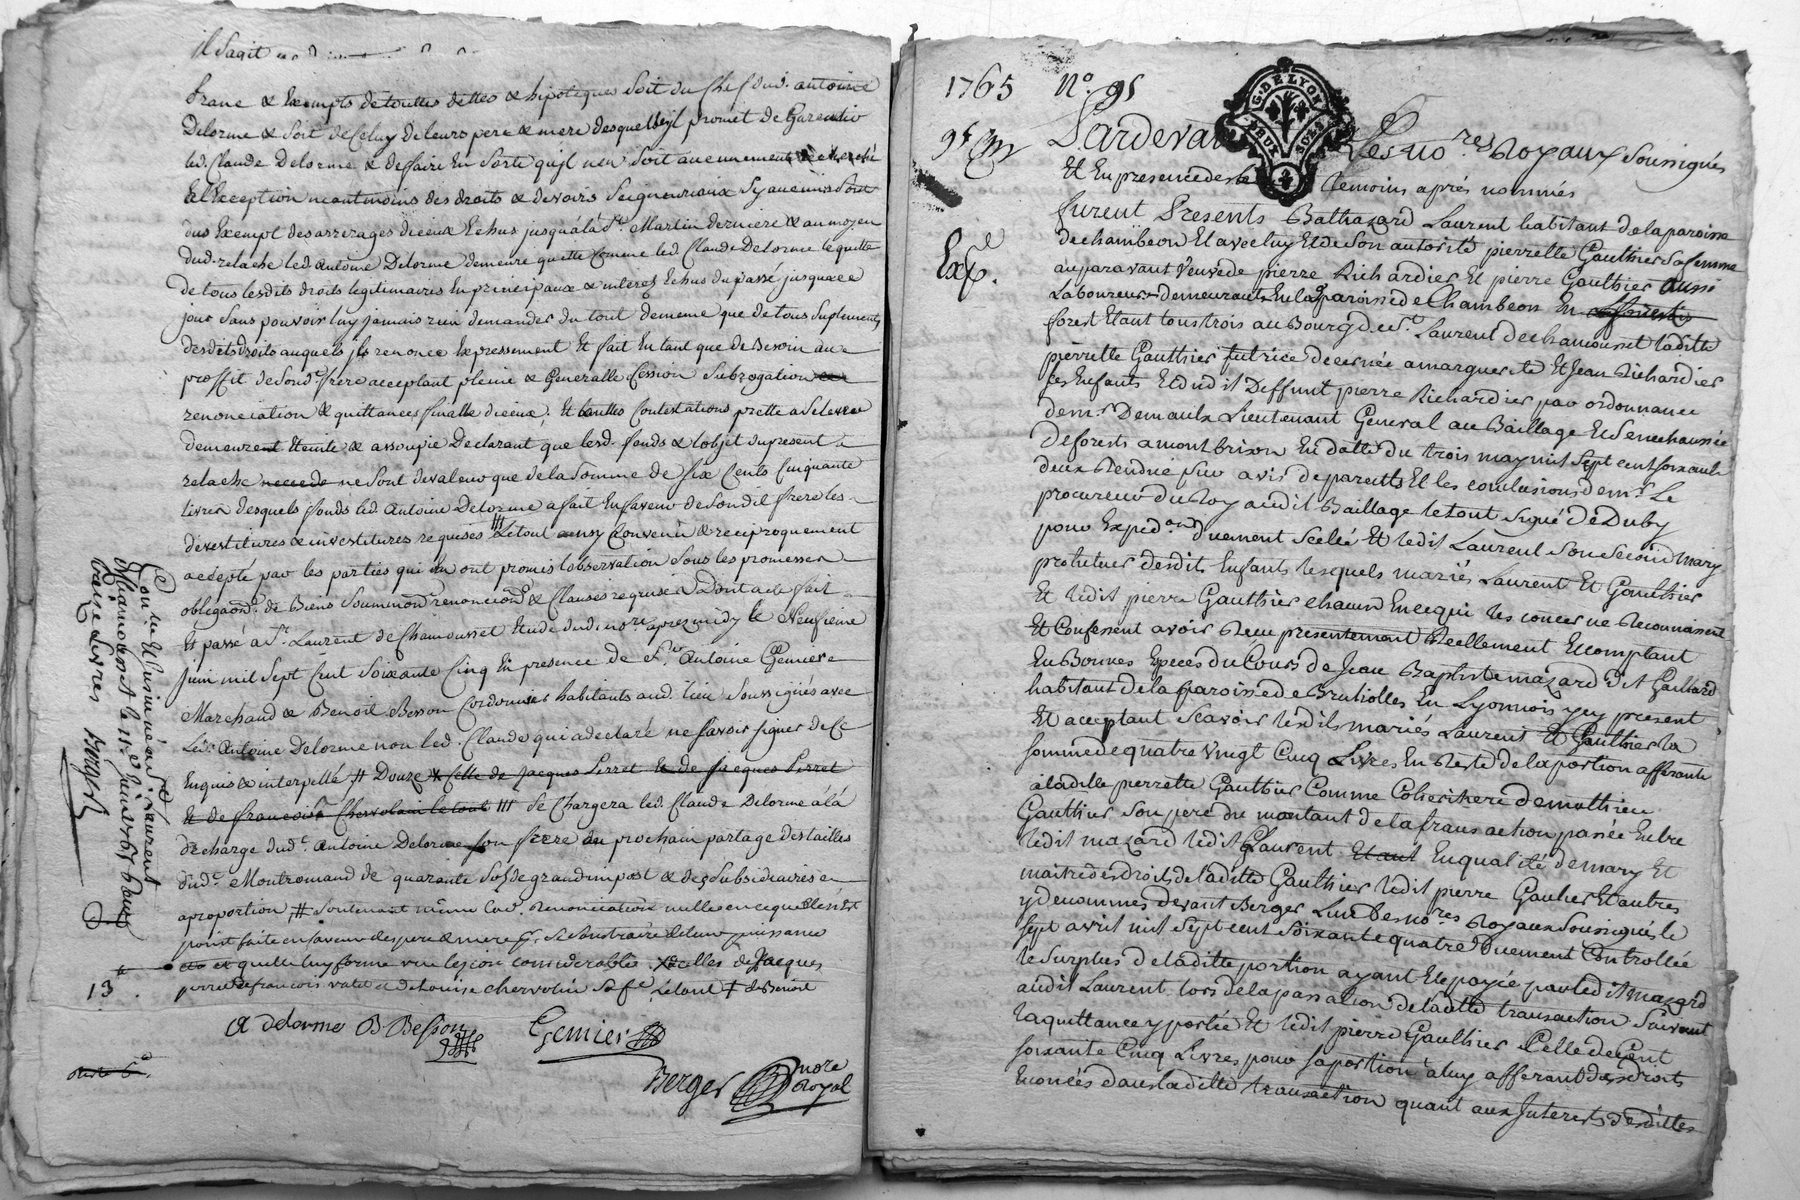 il Sagit
franc & Exempts de touttes dettes & hipoteques Soit du Chef dud. antoine
Delorme & Soit de Celuy de leurs pere & mere desquels il promet de Garentir
led. Claude Delorme & de ffaire En Sorte qu'jl n'en Soit aucunement Recherché
a l'Exception neantmoins des droits & devoirs Seigneuriaux Sy aucuns Sont
dus Exempt des arrerages diceux Echus jusqu'à la St. Martin derniere & au moyen
dud. relache led. Antoine Delorme demeure quitte Comme led. Claude Delorme le quitte
de tous lesdits droits legitimaires En principaux & interets Echus du passé jusqua ce
jour Sans pouvoir luy jamais rien demander du tout de meme que de tous Suplements
desdits droits auquels jls renonce Expressement Et fait En tant que de Besoin au
proffit de Sond. frere acceptant pleine & Generalle Cession Subrogation
renonciation & quittances finalle diceux, Et touttes Contestations prette a Selever
demeurent Eteinte & assoupie Declarant que lesd. fonds & lobjet du present
relache ne Sont de valeur que de la Somme de Six Cents Cinquante
livres desquels fonds led. Antoine Delorme a fait En faveur de Sondit frere les
devestitures & investitures requises /// Le tout ainsy Convenu & reciproquement
accépté par les parties qui en ont promis lobservation Sous les promesses
obligaons. de Biens Soummons. renoncions. & Clauses requises Dont acte fait
Et passé a St. Laurent de Chamousset Etude dud. nore. apres midy le Neufieme
juin mil Sept Cent Soixante Cinq En presence de Sr. Antoine Gemier
Marchand & Benoit Besson Cordonnier habitants aud. lieu Soussignés avec
Led. Antoine Delorme non led. Claude qui a declaré ne Savoir Signer de Ce
Enquis & interpellé # Douze * Celle de Jacques Perret & de Jacques Perret
Et de francois Chervolin le tout /// Se Chargera led. Claude Delorme a la
decharge dud. Antoine Delorme Son frere au prochain partage des tailles
dud. Montromand de quarante Sols de grand impost & des Subsidiaires a
proportion, # Soutenant même lad. renonciation nulle en ce quelle n'Est
point faite en faveur des pere & mere
quelle luy forme une lezion considerable, X celles de Jacques
perret & francois valet & de Louise chervolin Sa fe. Letout † de Benoit
13
A delorme B Besson Gemier
Berger nore Royal
Con lé Et Insinué a St. Laurent
de Chamousset le 11e juin 1765 Reçu
treize Livres Berger
1765 No. 91
9e Exp.
Pardevant Les nores. Royaux Soussignés
Et En presence des temoins après nommés
furent Presents Balthazard Laurent habitant de la paroisse
de chambeon Et avec luy Et de Son autorité pierrette Gauthier Sa femme
auparavant Veuve de pierre Richardier Et pierre Gauthier aussi
Laboureurs demeurants En lad. paroisse de Chambeon En
forest Etant tous trois au Bourg de St. Laurent de chamousset ladite
pierrette Gauthier tutrice decernée a marguerite Et Jean Richardier
Ses Enfants Et dudit Deffunt pierre Richardier par ordonnance
de mr. Demaux Lieutenant General au Baillage Et Senechaussée
de forests a montbrison En datte du trois may mil Sept cent Soixante
deux Rendue Sur avis de parents Et les conclusions de mr. Le
procureur du Roy audit Baillage le tout Signé De Duby
pour Expedion. Duement Scellé Et ledit Laurent Son Second mary
protuteur desdits Enfants lesquels mariés Laurent Et Gauthier
Et ledit pierre Gauthier chacun En ce qui les concerne Reconnaissent
Et Confessent avoir Recu presentement Reellement Et comptant
En Bonnes Especes du Cours de Jean Baptiste mazard dit Gaillard
habitant de la paroisse de Brulliolles En Lyonnois jcy present
Et acceptant Scavoir lesdits mariés Laurent Et Gauthier la
Somme de quatre vingt Cinq Livres En Reste de la portion afferante
a ladite pierrette Gauthier Comme Coheritiere de mathieu
Gauthier Son pere du montant de la transaction passée Entre
ledit mazard ledit Laurent Etant En qualité de mary Et
maitre des droits de ladite Gauthier ledit pierre Gautier Et autres
y denommés devant Berger L'un des nores. Royaux Soussignés le
Sept avril mil Sept cent Soixante quatre Duement Controllée
le Surplus de ladite portion ayant Eté payée par ledit mazard
audit Laurent lors de la passation de ladite transaction Suivant
la quittance y portée Et ledit pierre Gauthier Celle de Cent
Soixante Cinq Livres pour Sa portion à luy afferant des droits
Enoncés dans ladite transaction quant aux Interets desdittes
G. DE LYON